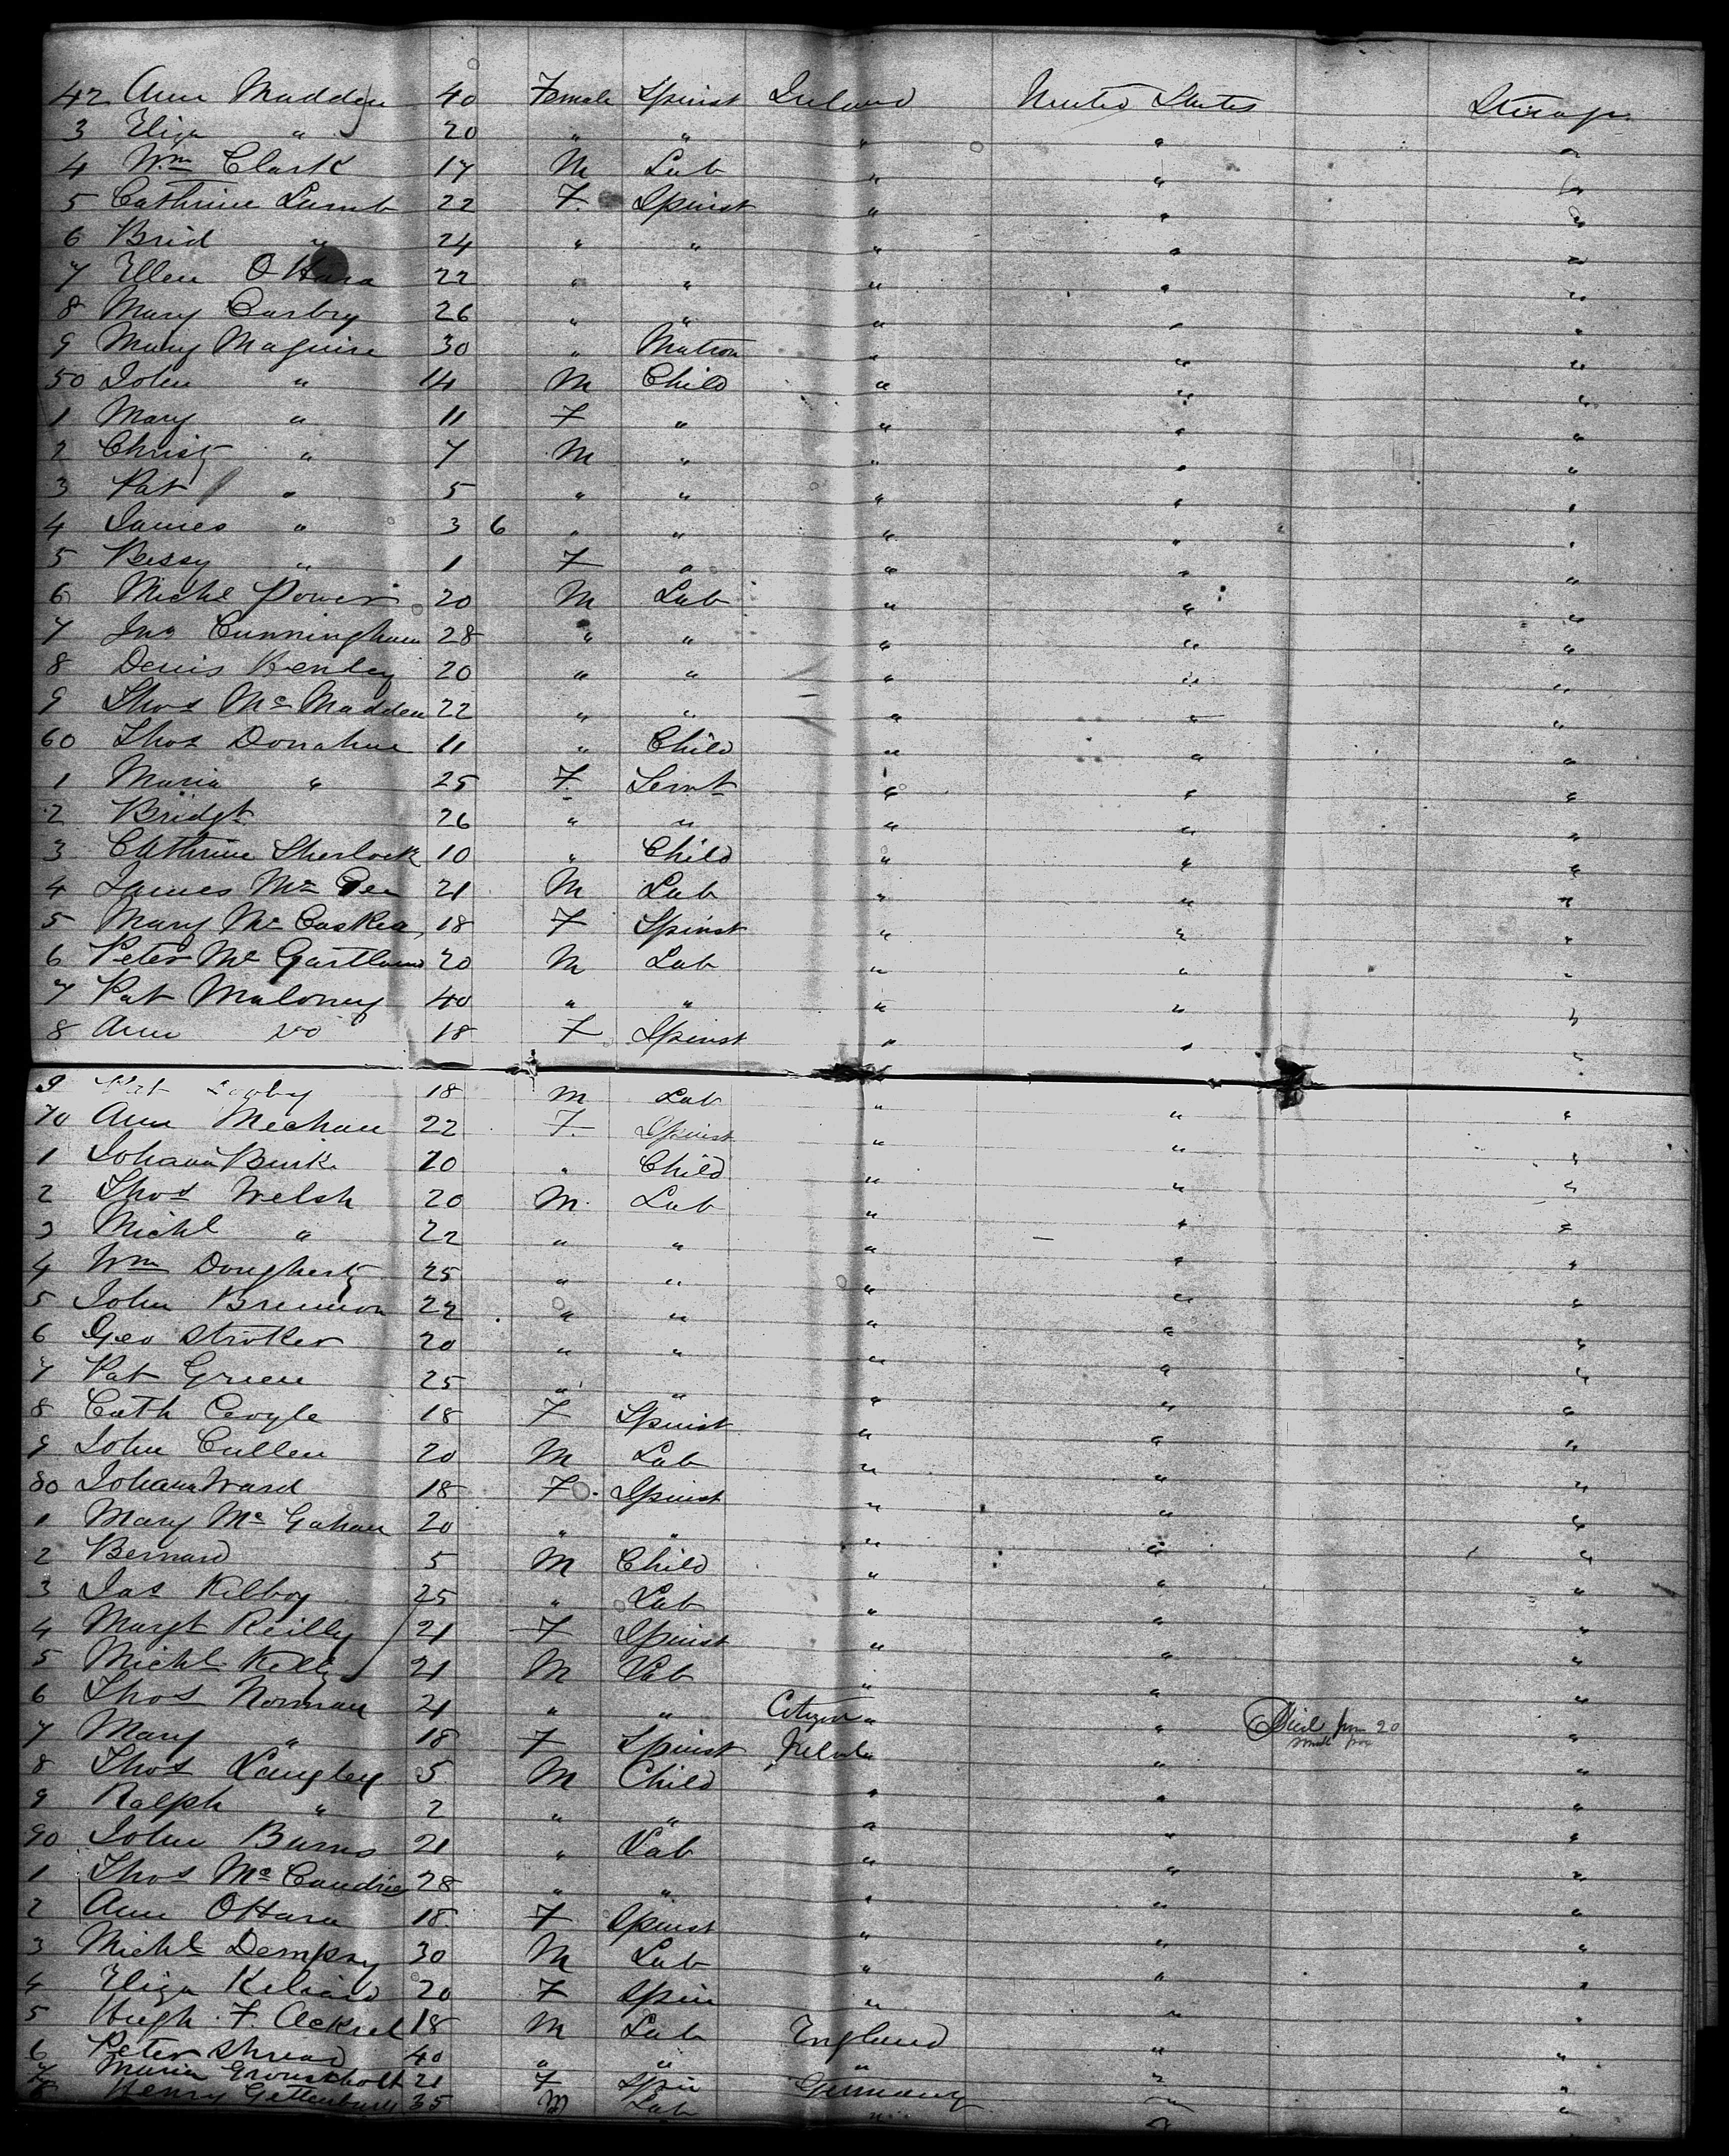 42 Ann Madden 40 Female Spinst Ireland United States Steerage
3 Eliza " 20 " " " " "
4 Wm Clark 17 M Lab " " "
5 Cathrine Lamb 22 F. Spinst " " "
6 Brid " 24 " " " " "
7 Ellen O Hara 22 " " " " "
8 Mary Carbry 26 " " " " "
9 Mary Maguire 30 " Matron " " "
50 John " 14 M Child " " "
1 Mary " 11 F " " " "
2 Christy " 7 M " " " "
3 Pat " 5 " " " " "
4 James " 3 6 " " " " "
5 Bessy " 1 F " " " "
6 Michl Power 20 M Lab " " "
7 Jno Cunningham 28 " " " " "
8 Denis 20 " " " " "
9 Thos Mc Madden 22 " " " " "
60 Thos Donahue 11 " Child " " "
1 Maria " 25 F. Servt " " "
2 Bridgt 26 " " " " "
3 Cathrine Sherlock 10 " Child " " "
4 James Mc Gee 21 M Lab " " "
5 Mary Mc Caskea 18 F Spinst " " "
6 Peter Mc Gartland 20 M Lab " " "
7 Pat Maloney 40 " " " " "
8 Ann do 18 F Spinst " " "
9 Pat 18 M Lab " " "
70 Ann Mechan 22 F. Spinst " " "
1 Johana Burke 10 " Child " " "
2 Thos Welsh 20 M. Lab " " "
3 Michl " 22 " " " " "
4 Wm Dougherty 25 " " " " "
5 John Brennon 22 " " " " "
6 Geo Stroker 20 " " " " "
7 Pat Green 25 " " " " "
8 Cath Coyle 18 F Spinst " " "
9 John Cullen 20 M Lab " " "
80 Johana Ward 18 F. Spinst " " "
1 Mary Mc Gahan 20 " " " " "
2 Bernard 5 M Child " " "
3 Jas Kilboy 25 " Lab " " "
4 Margt Reilly 21 F Spinst " " "
5 Michl Kelly 21 M Lab " " "
6 Thos Norman 21 " " Citizen " " "
7 Mary " 18 F Spinst Ireland " Died Jan 20 small pox "
8 Thos Langley 5 M Child " " "
9 Ralph " 2 " " " " "
90 John Burns 21 " Lab " " "
1 Thos Mc 28 " " " " "
2 Ann OHara 18 F Spinst " " "
3 Michl Dempsy 30 M Lab " " "
4 Eliza 20 F Spin " " "
5 Hugh F. 18 M Lab England " "
6 Peter 40 " " " " "
7 Maria 21 F Spin Germany " "
8 Henry 35 M Lab " " "